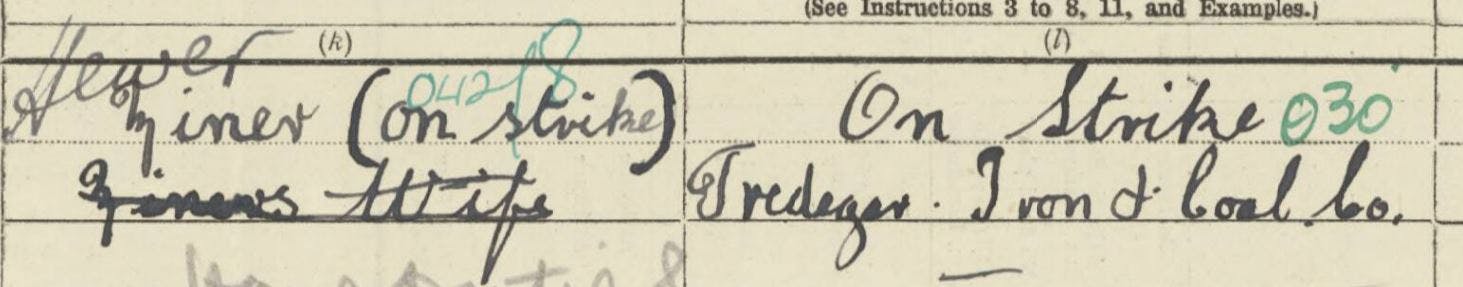 (See Instructions 3 to 8, 11, and Examples.)
(k)
(l)
Hewer
042/8
Miner (on strike)
On Strike 030
Miners Wife
Tredegar Iron & Coal Co.
—